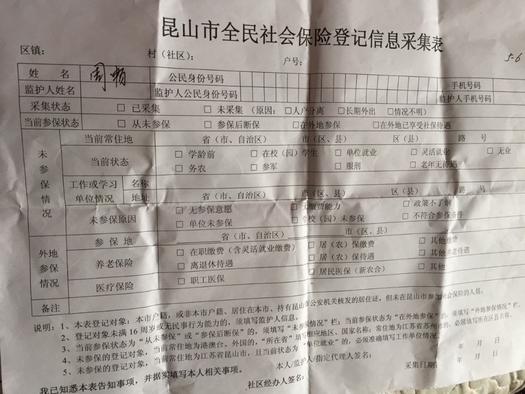 昆山市全民社会保险登记信息采集表
区镇： 村（社区）： 户号： 5-6
姓 名 周 公民身份号码 手机号码
监护人姓名 监护人公民身份号码 监护人手机号码
采集状态 □ 已采集 □ 未采集（原因：□人户分离 □长期外出 □情况不明）
当前参保状态 □ 从未参保 □ 参保后断保 □在外地参保 □在外地已享受社保待遇
未参保情况 当前常住地 省（市、自治区） 市（区、县） 路 号
当前状态 □ 学龄前 □ 在校（园）学生 □ 单位就业 □ 灵活就业 □ 无业
□ 务农 □ 参军 □ 服刑 □ 老年无待遇
工作或学习 名称
单位情况 地址 省（市、自治区） 市（区、县） 路 号
未参保原因 □ 无参保意愿 □ 无缴费能力 □ 政策不了解
□ 单位未参保 □ 学校（园）未参保 □ 不符合参保条件
外地参保情况 参 保 地 省（市、自治区） 市（区、县）
养老保险 □ 在职缴费（含灵活就业缴费） □ 居（农）保缴费 □ 其他缴费
□ 离退休待遇 □ 居（农）保待遇 □ 其他养老待遇
医疗保险 □ 职工医保 □ 居民医保（新农合） □ 其他
备注
说明：1、本表登记对象：本市户籍，或非本市户籍、居住在本市、持有昆山市公安机关核发的居住证，但未在昆山市参加社会保险的人员。
2、登记对象未满 16 周岁或无民事行为能力的，须填写监护人信息。
3、当前参保状态为“从未参保”或“参保后断保”的，须填写“未参保情况”栏；当前参保状态为“在外地参保”
4、未参保的登记对象，当前常住地为港澳台、外国的，“所在省”填写
5、未参保的登记对象，当前常住地为江苏省昆山市，且当前状态为“单位就业”的，必须准确填写工作单位情况。
我已知悉本表告知事项，并据实填写本人相关事项。 本人/监护人/指定代理人签名： 年 月 日
社区经办人签名： 采集日期： 年 月 日